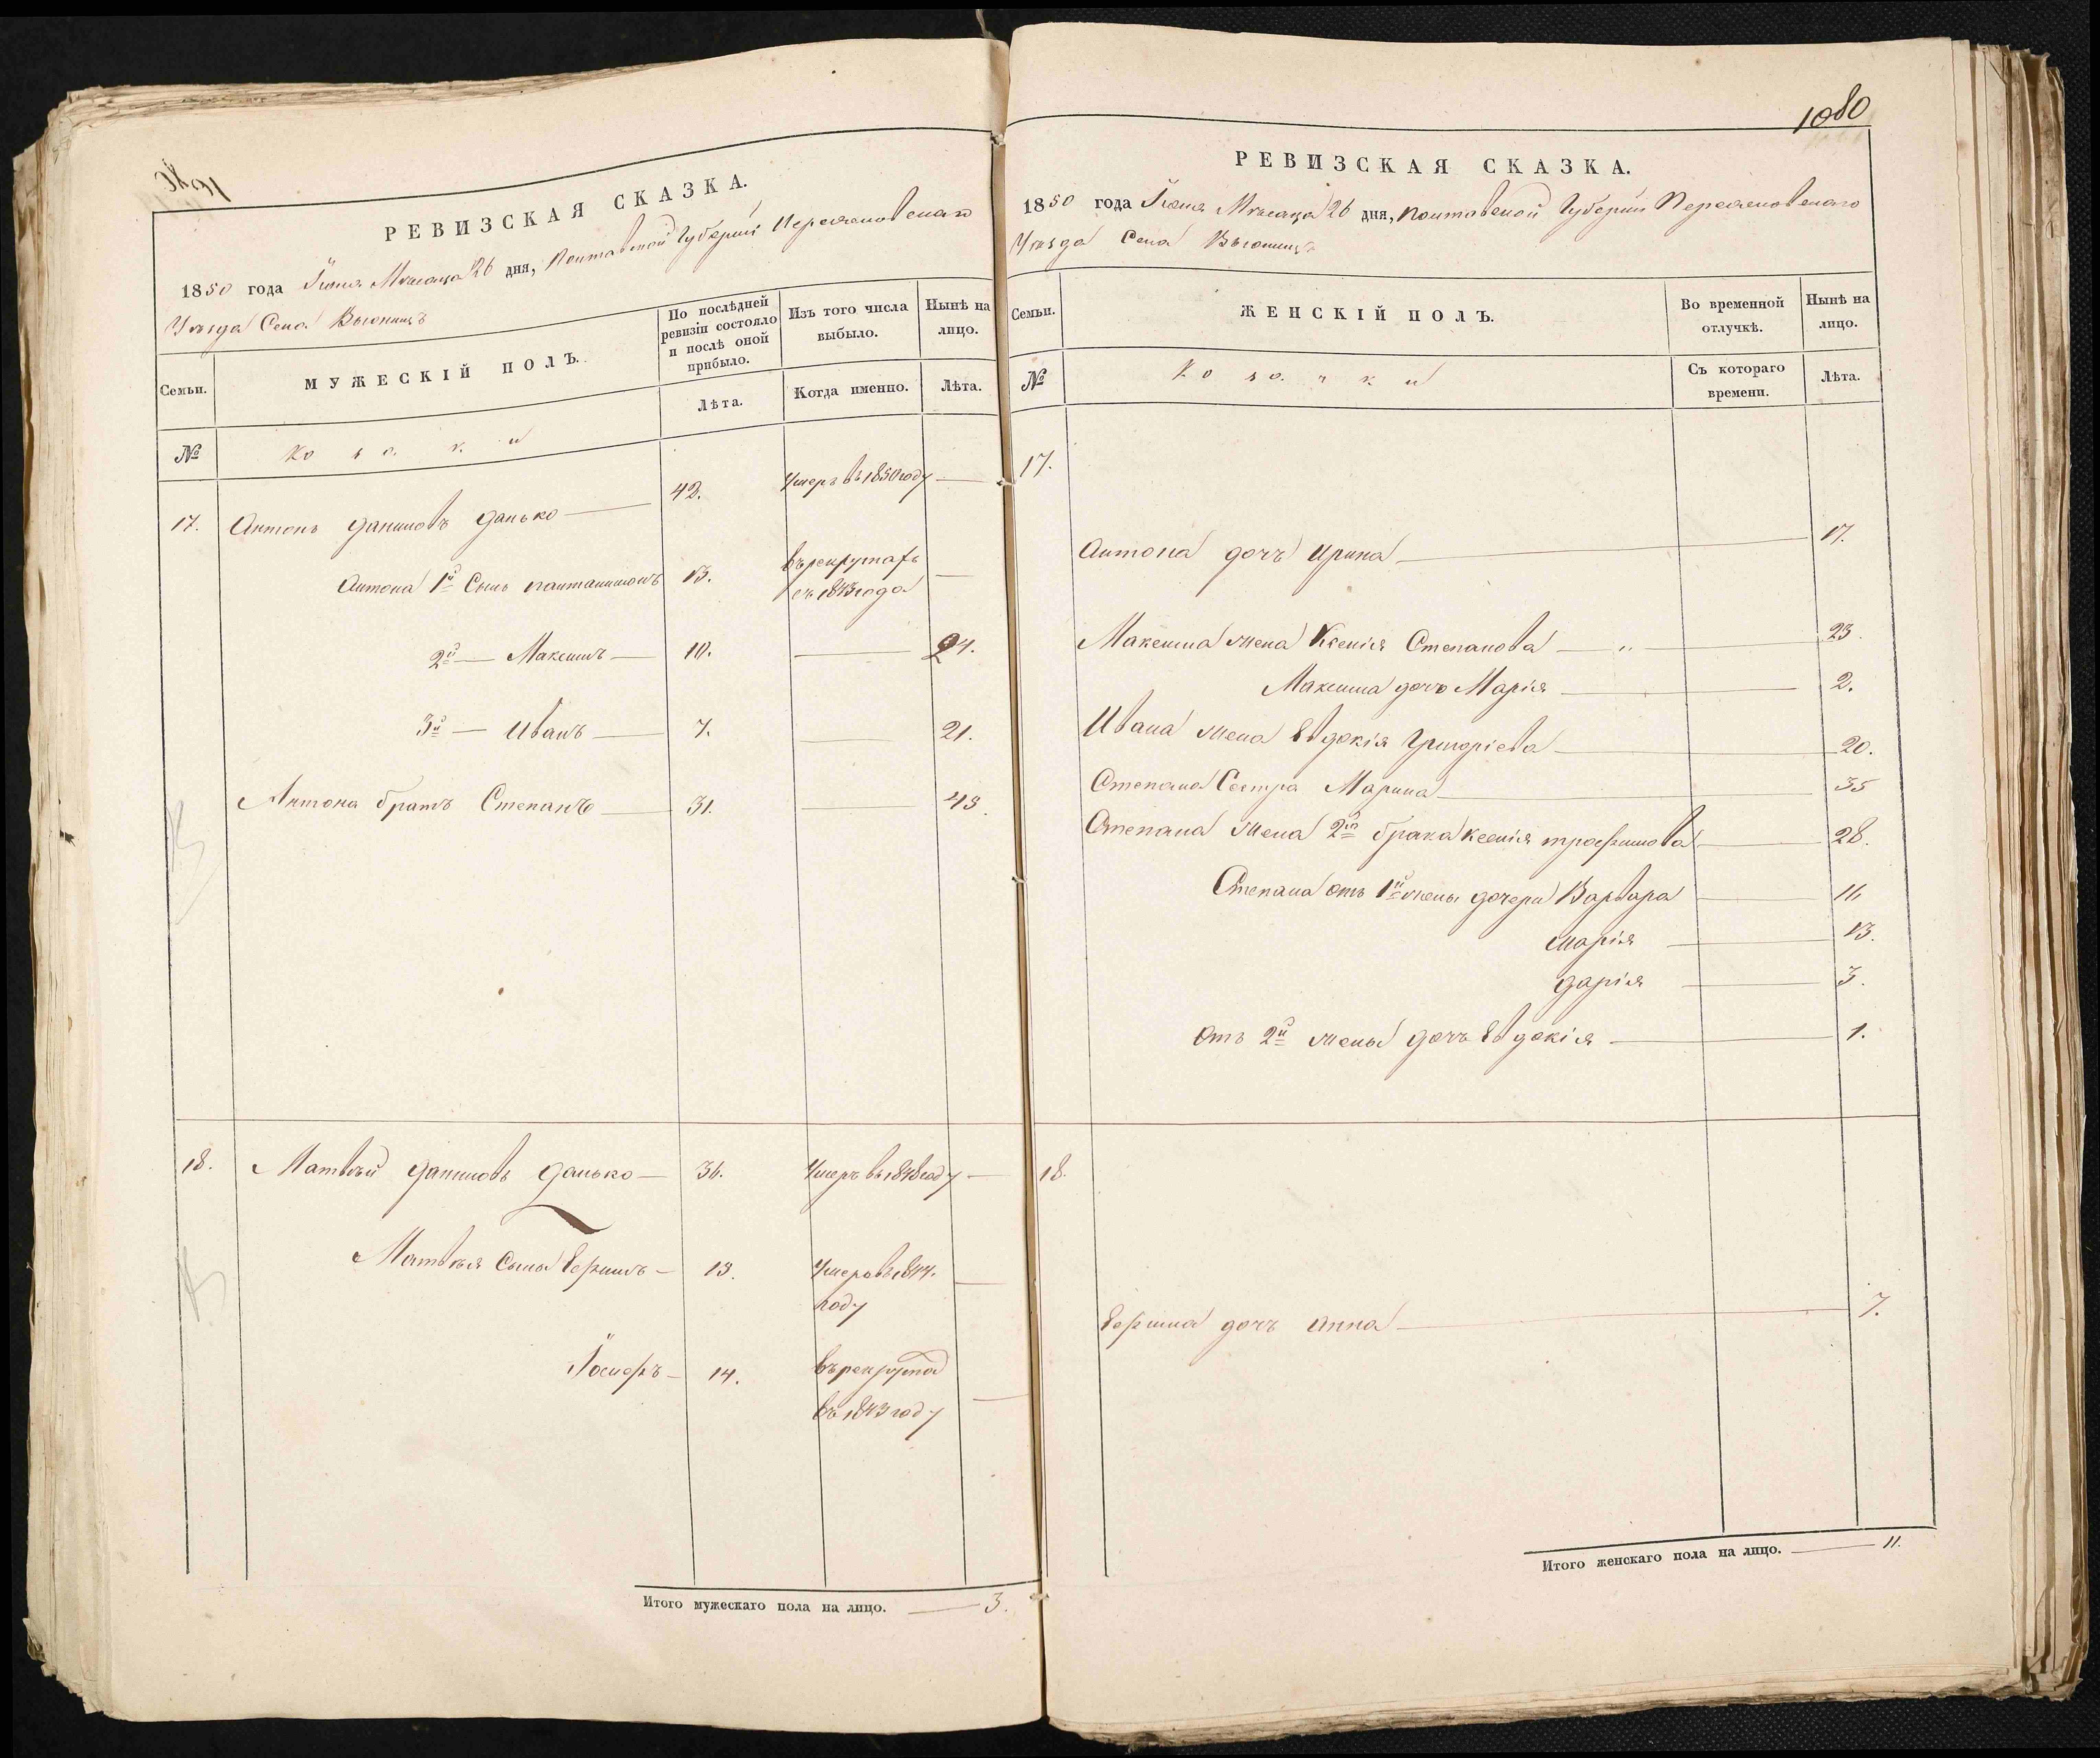 РЕВИЗСКАЯ СКАЗКА.
1850 года Іюня Мѣсяца 26 дня, Полтавской Губерніи Переясловскаго
Уѣзда Села Вьюнищъ
Семьи.
МУЖЕСКІЙ ПОЛЪ.
По послѣдней ревизіи состояло и послѣ оной прибыло.
Изъ того числа выбыло.
Нынѣ на лицо.
№
Козаки
Лѣта.
Когда именно.
Лѣта.
17. Антонъ Даниловъ Данько 42. Умеръ въ 1850 году
Антона 1й Сынъ Пантелимонъ 13. въ рекрутахъ
съ 1843 года
2й — Максимъ — 10. — 24.
3й — Иванъ — 7. — 21.
Антона братъ Степанъ — 31. — 43.
18. Матвѣй Даниловъ Данько — 36. Умеръ въ 1848 году —
Матвѣя Сыны Ефимъ — 13. Умеръ въ 1844.
году
Іосифъ — 14. въ рекруты
въ 1843 году
Итого мужескаго пола на лицо. — 3.
1080
РЕВИЗСКАЯ СКАЗКА.
1850 года Іюня Мѣсяца 26 дня, Полтавской Губерніи Переясловскаго
Уѣзда Села Вьюнищъ
Семьи.
ЖЕНСКІЙ ПОЛЪ.
Во временной отлучкѣ.
Нынѣ на лицо.
№
Козачки
Съ котораго времени.
Лѣта.
17.
Антона дочь Ирина — 17.
Максима жена Ксенія Степанова — „ — 23.
Максима дочь Марія — 2.
Ивана жена Евдокія Григоріева — 20.
Степана Сестра Марина — 35
Степана жена 2го брака Ксенія Трофимова — 28.
Степана отъ 1й жены дочери Варвара — 16
Марія — 13.
Дарія — 3.
Отъ 2й жены дочь Евдокія — 1.
18.
Ефима дочь Анна — 7.
Итого женскаго пола на лицо. — 11.